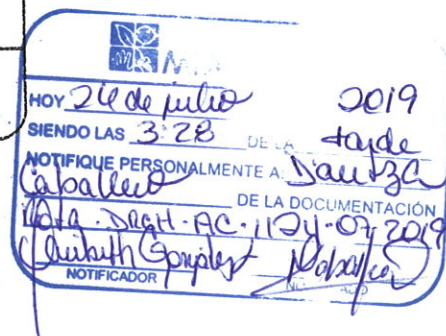 MI
HOY 24 de julio 2019
SIENDO LAS 3:28 DE LA tarde
NOTIFIQUE PERSONALMENTE A: Danitza
Caballero DE LA DOCUMENTACIÓN
Nota. DRGH-AC-1124-07-2019
González
NOTIFICADOR